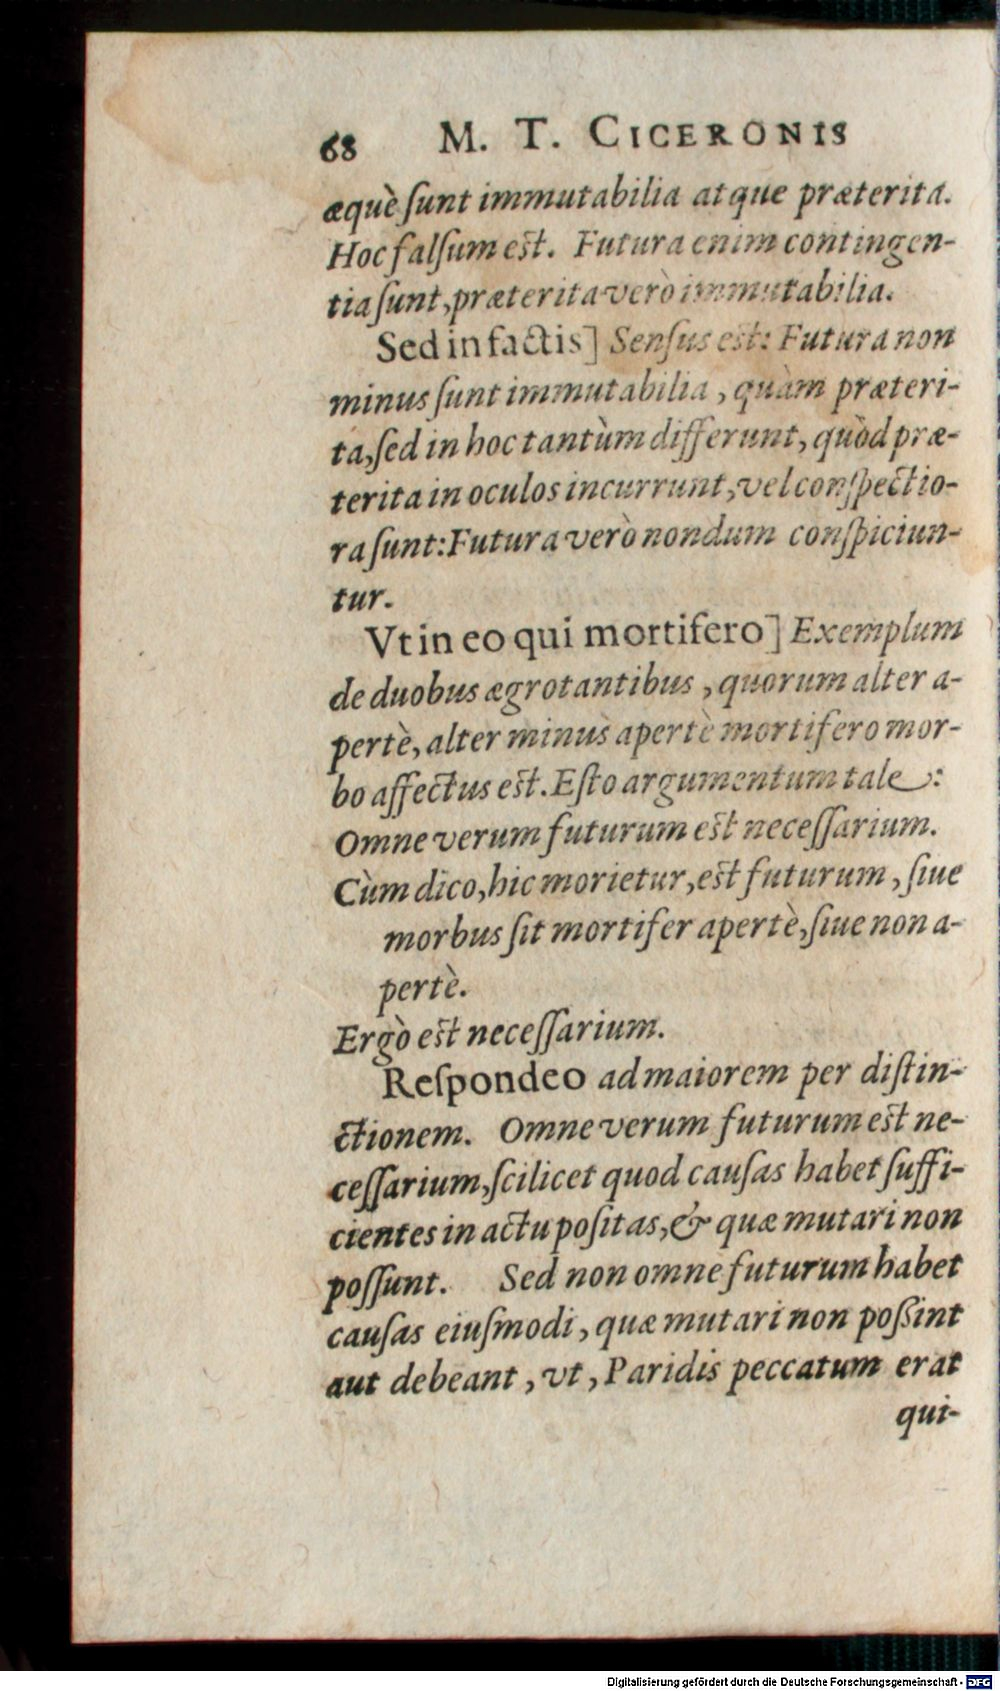 68 M. T. CICERONIS
æquè ſunt immutabilia atque præterita.
Hoc falſum est. Futura enim contingen-
tia ſunt, præterita verò immutabilia.
Sed in factis] Senſus est: Futura non
minus ſunt immutabilia, quàm præteri-
ta, ſed in hoc tantùm differunt, quòd præ-
terita in oculos incurrunt, vel conſpectio-
ra ſunt: Futura verò nondum conſpiciun-
tur.
Vt in eo qui mortifero] Exemplum
de duobus ægrotantibus, quorum alter a-
pertè, alter minùs apertè mortifero mor-
bo affectus est. Eſto argumentum tale:
Omne verum futurum est neceſſarium.
Cùm dico, hic morietur, est futurum, ſiue
morbus ſit mortifer apertè, ſiue non a-
pertè.
Ergò est neceſſarium.
Reſpondeo ad maiorem per diſtin-
ctionem. Omne verum futurum est ne-
ceſſarium, ſcilicet quod cauſas habet ſuffi-
cientes in actu poſitas, & quæ mutari non
poſſunt. Sed non omne futurum habet
cauſas eiuſmodi, quæ mutari non poßint
aut debeant, vt, Paridis peccatum erat
qui-
Digitalisierung gefördert durch die Deutsche Forschungsgemeinschaft - DFG